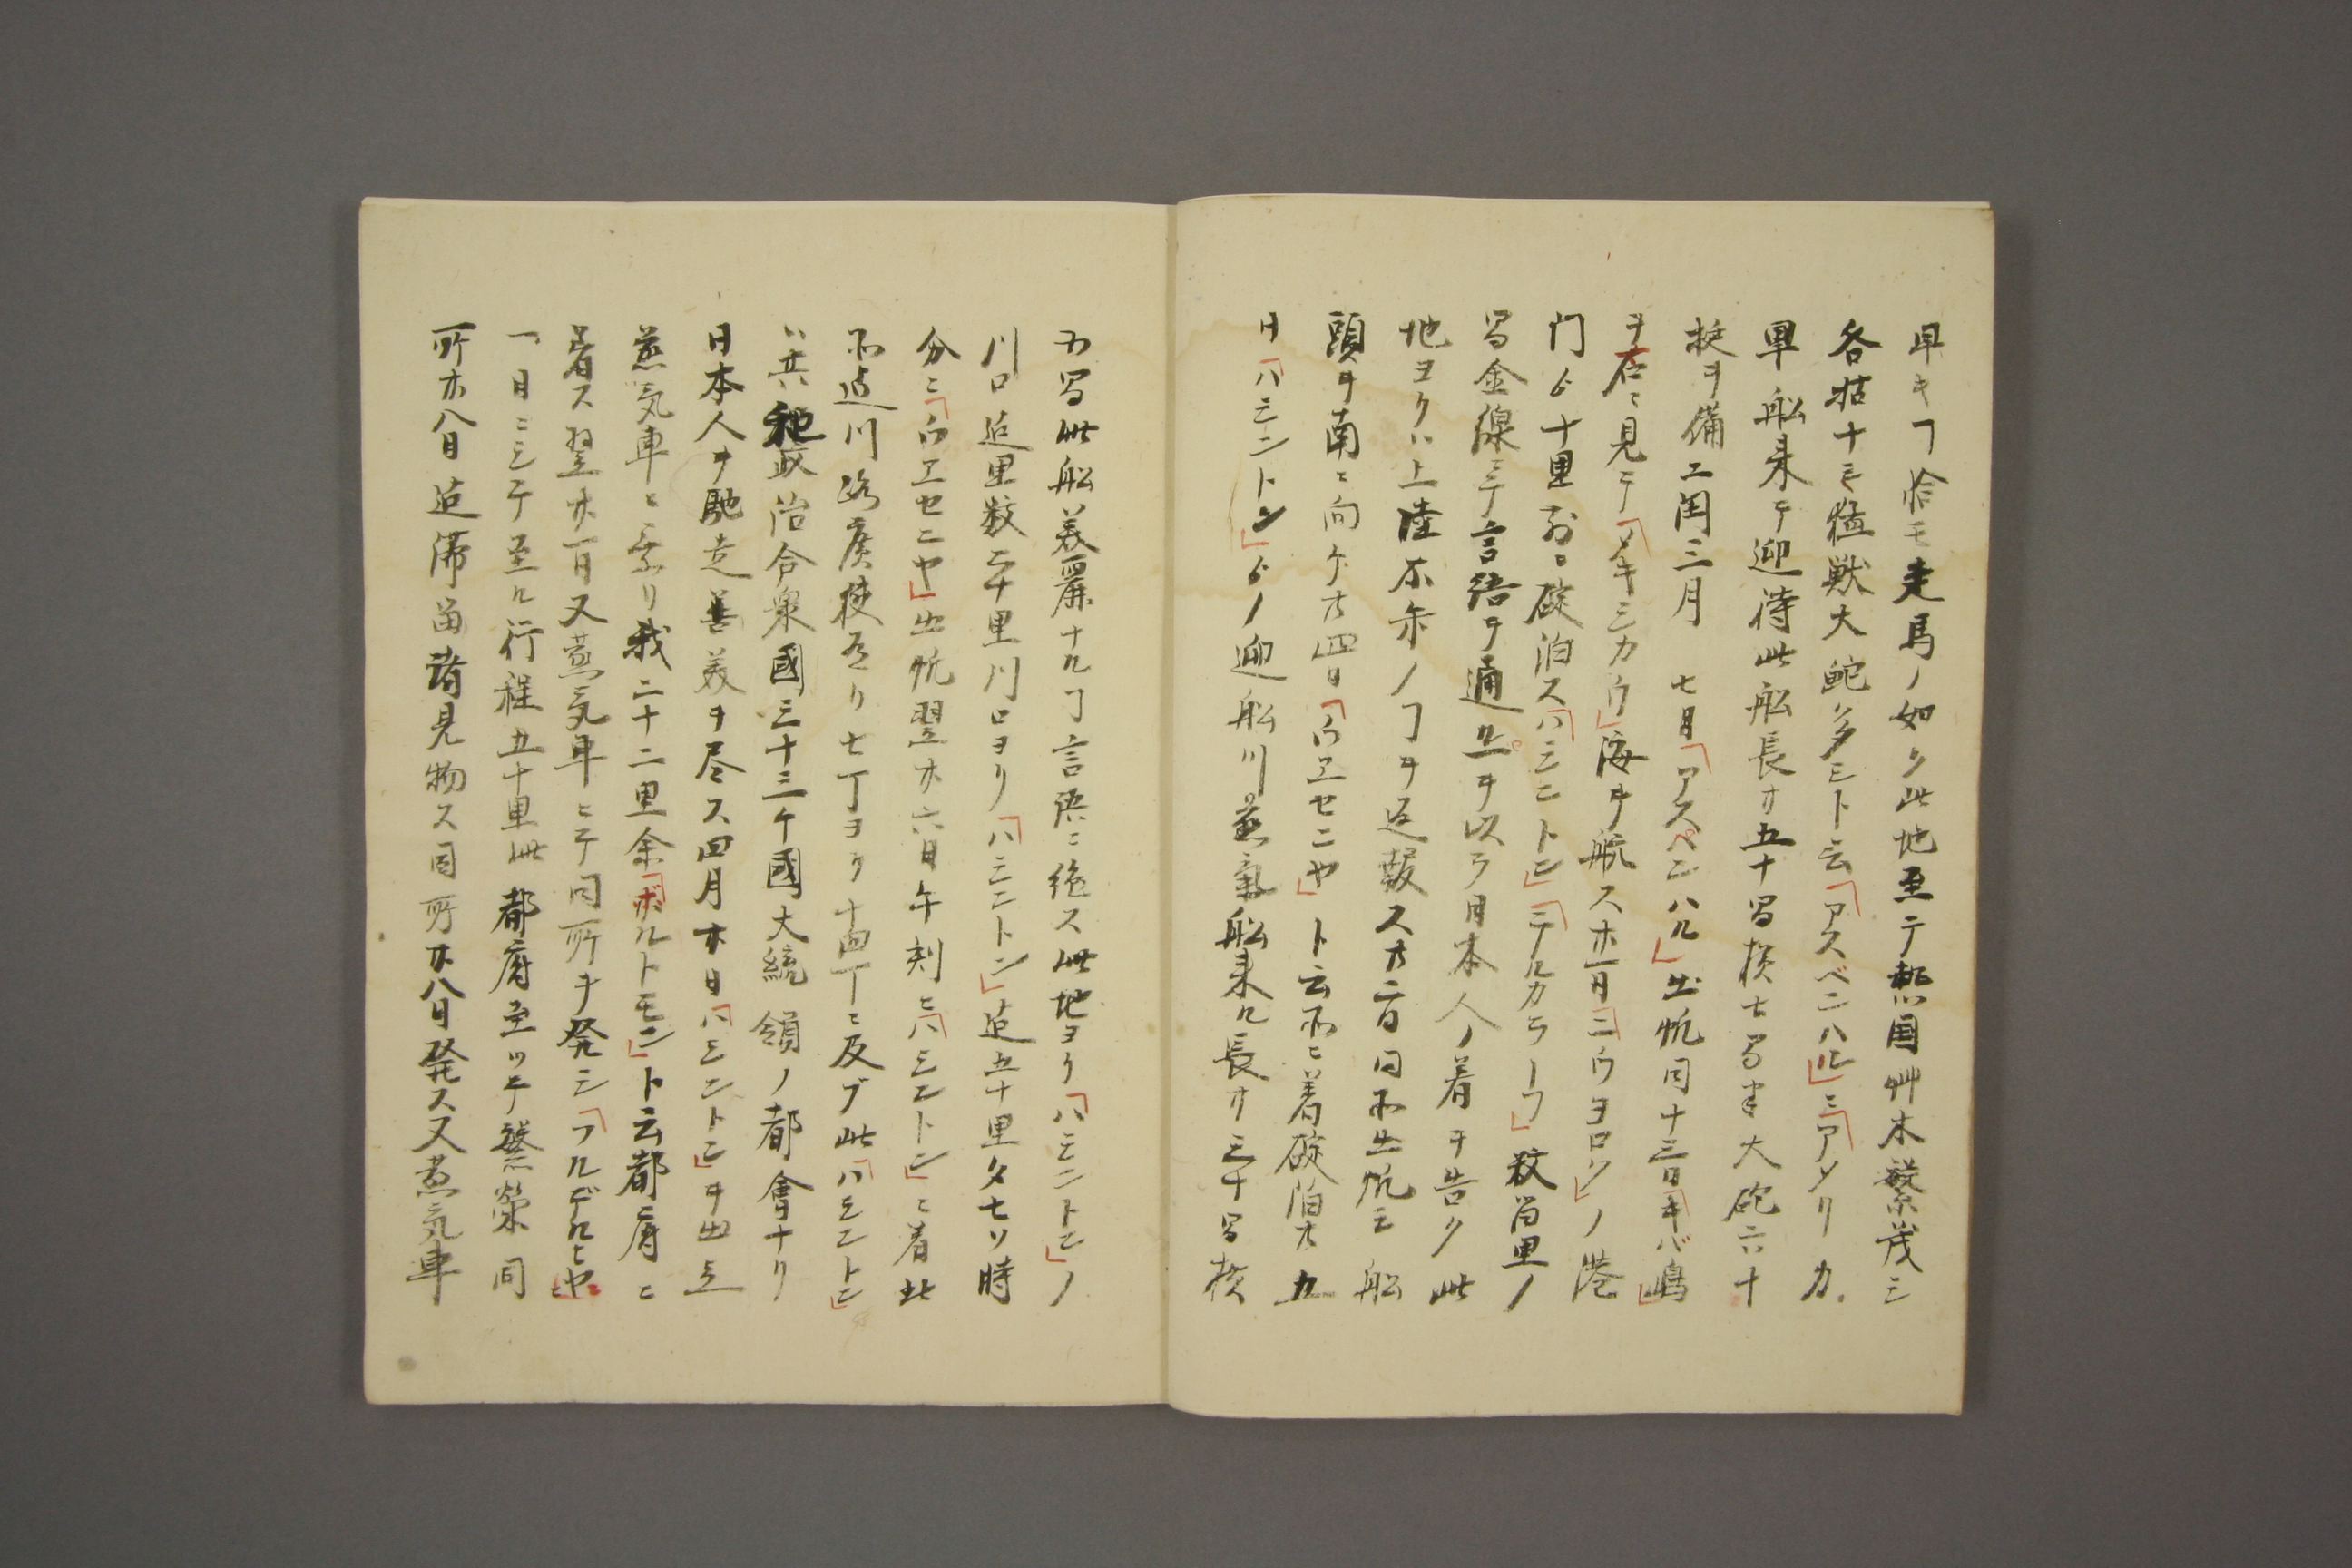 早キ㏇恰モ走馬ノ如ク此地至テ熱国艸木繁茂シ
各枯ナシ猛獣大蛇多シト云「アスペンハル」ニ「アメリカ
軍船来テ迎待此船長サ五十間横七間半大砲六十
挺ヲ備エ閏三月 七日「アスペンハル」出帆同十三日「キバ嶋」
ヲ右ニ見テ「メキシカウ」海ヲ航ス廿一日「ニウヨロク」ノ港
門ゟ十里前ニ碇泊ス「ハシントン」「テルカラーフ」数百里ノ
間金線ニテ言語ヲ通ルヲ以テ日本人ノ着ヲ告ク此
地ヨクハ上陸不ノ㏇ヲ返報ス廿二日同所出帆シ船
頭ヲ南ニ向ケ廿四日「ウエセニヤ」ト云所ニ着碇泊廿五
日「ハシントン」ゟノ迎船川蒸氣船来ル長サ三十間横
五間此船美麗ナル㏇言語ニ絶ス此地ヨリ「ハシントン」ノ
川口迄里数二十里川口ヨリ「ハシントン」迄五十里夕七ツ時
分ニ「ウエセニヤ」出帆翌廿六日午刻ニ「ハシントン」ニ着此
所迄川路広狭有リ七丁ヨリ十四丁ニ及ブ此「ハシントン」
ハ共和政治合衆國三十三ケ國大統領ノ都會ナリ
日本人ヲ馳走善美ヲ尽ス四月廿日「ハシントン」ヲ出立
蒸気車ニ乗リ我二十二里余「ボルトモン」ト云都府ニ
着ス翌廿一日又蒸気車ニテ同所ヲ発シ「フルデルヒヤ」
一日ニシテ至ル行程五十里此都府至ツテ繁榮同
所廿八日迄滞留諸見物ス同所廿八日発ス又蒸気車